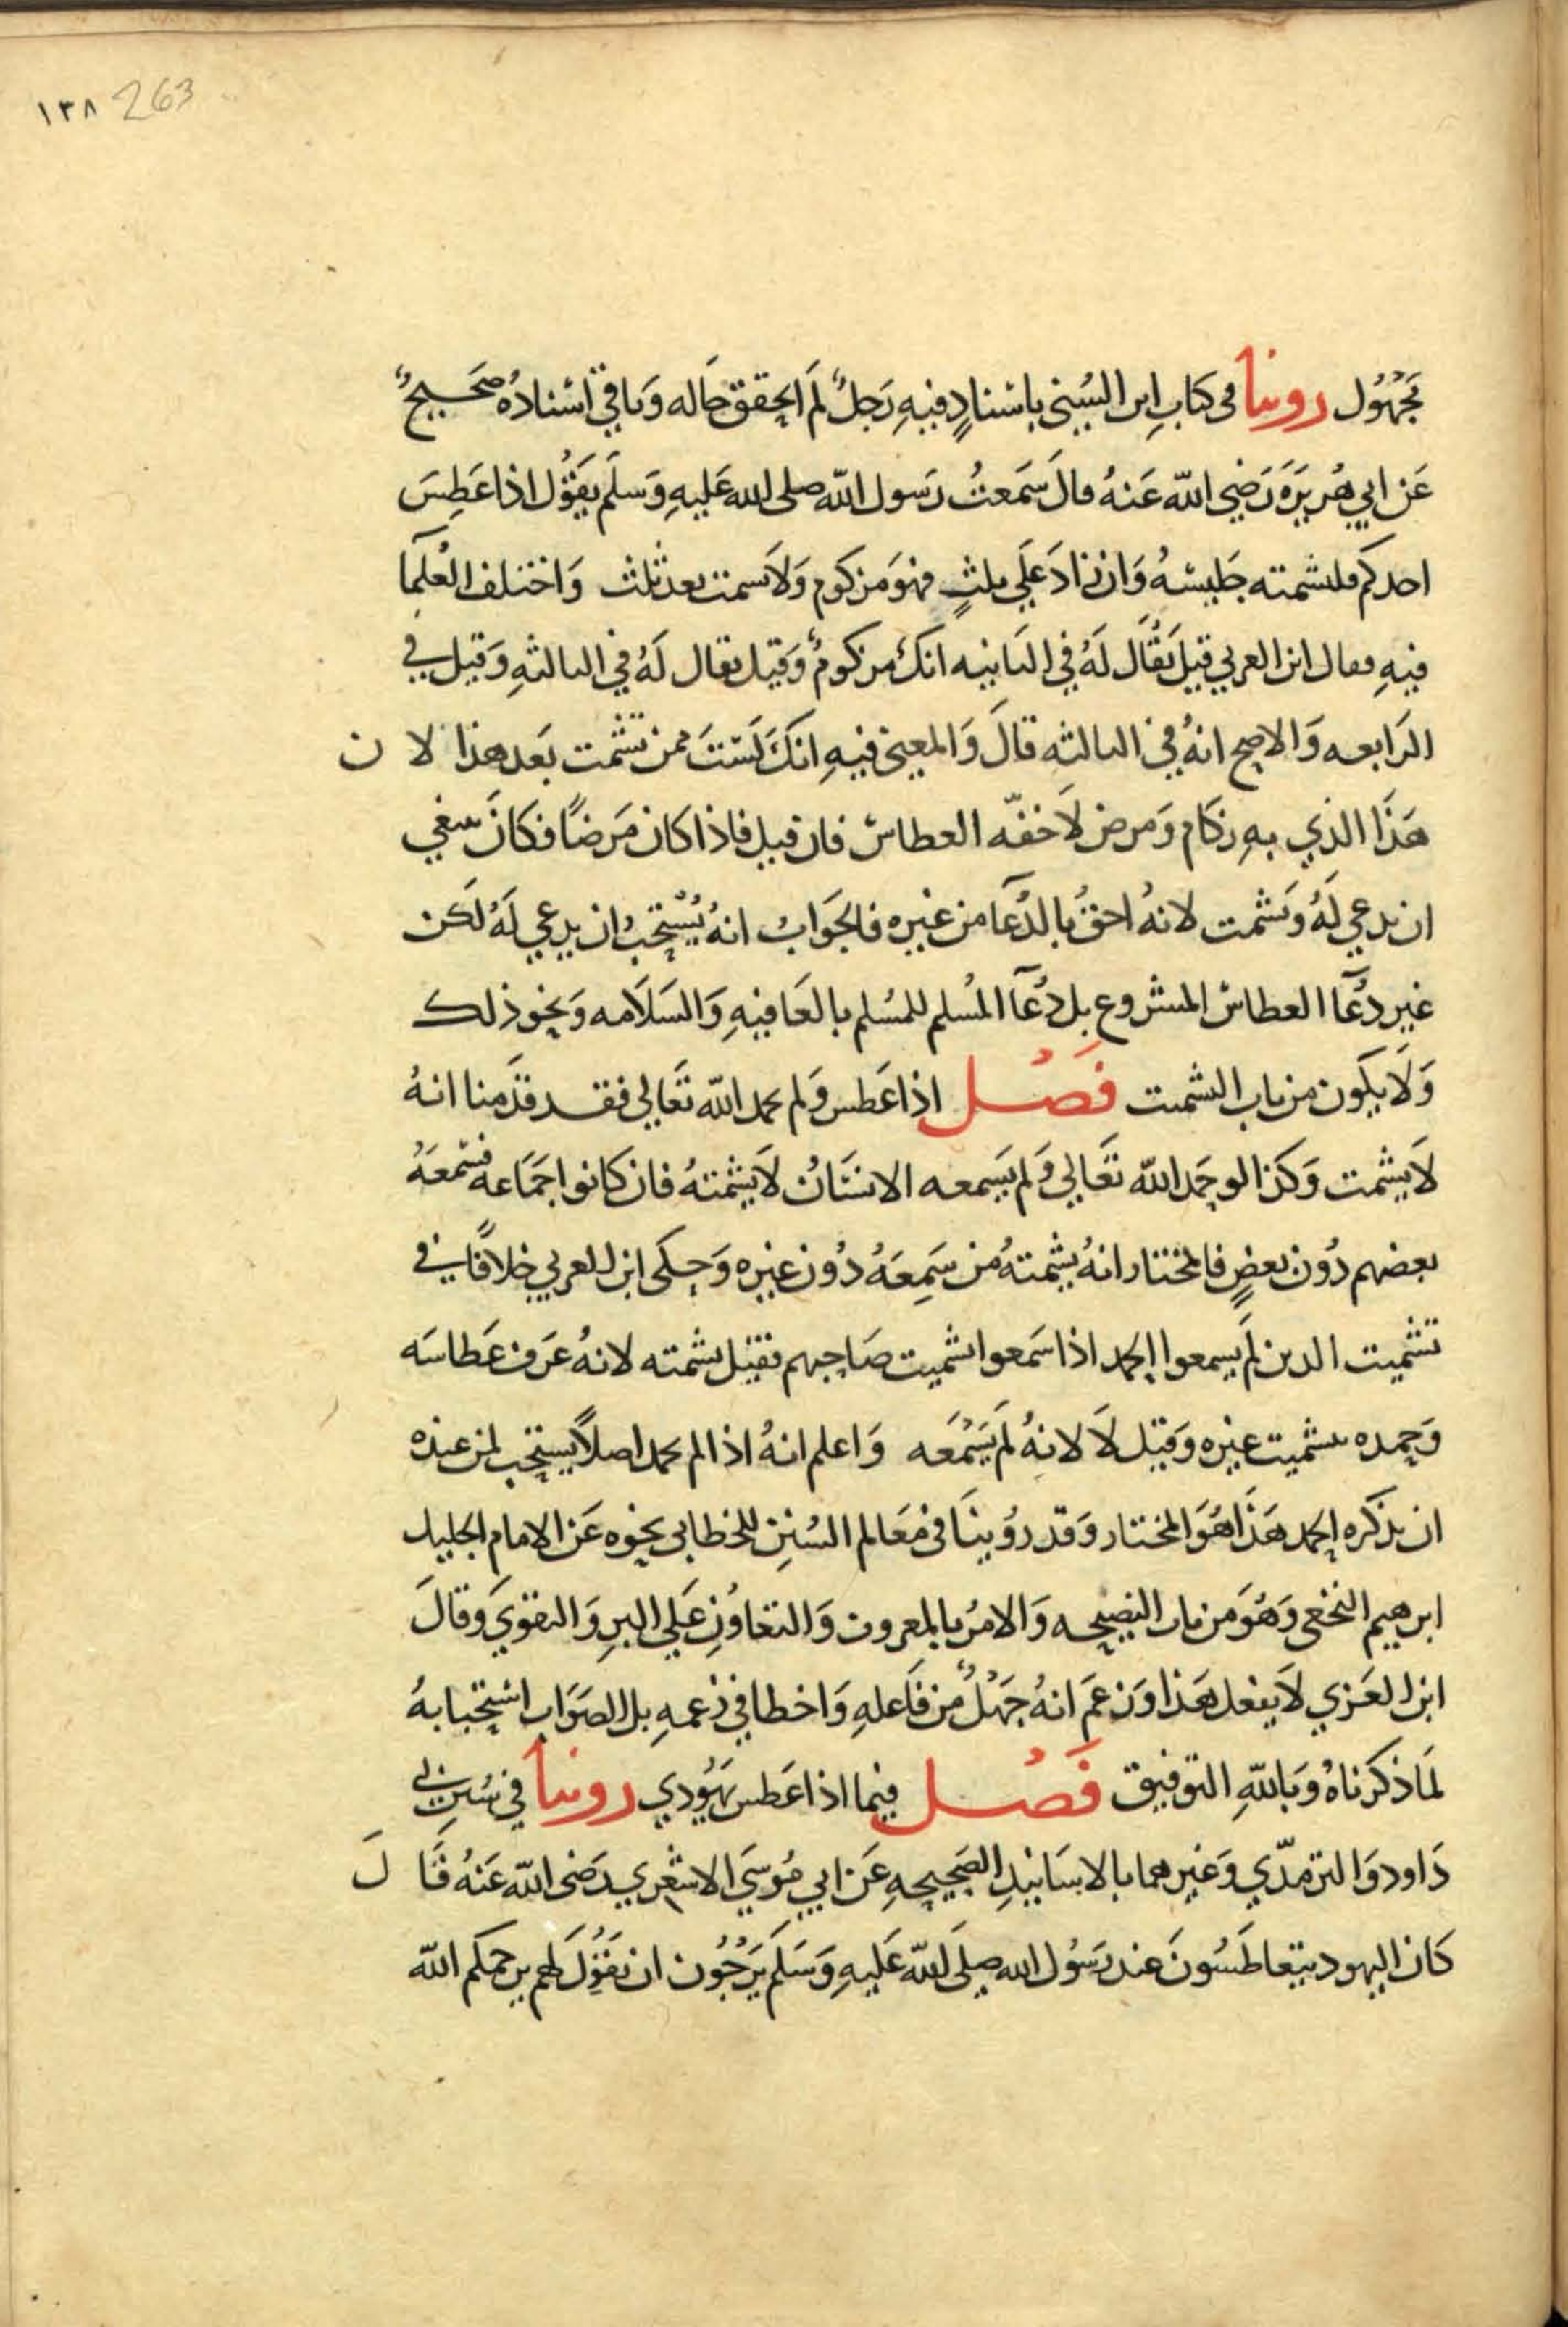 ١٣٨ 263
مَجْهُول روينا فى كتابِ ابن السُنى باسنادٍ فيهِ رَجلٌ لَم اتحقق حَاله وَباقي اسْنادهُ صَحيحٌ
عَن ابي هُريرَة رَضِي اللّه عَنهُ قالَ سَمَعتُ رَسول اللّه صلى الله عَليهِ وَسلَم يقوُل اذا عَطِسَ
احدكم فليشمته جَليسُهُ وَان زادَ عَلَى ثلثٍ فهوَ مَزكوم وَلا يسمت بعد ثلث وَاختلف العُلَما
فيهِ فقال ابن العربي قيل يُقَال لَهُ في الثانيه انكَ مزكومٌ وَقيل يقال لَهُ في الثالثهِ وَقيل في
الرَابعه وَالاصح انهُ في الثالثه قالَ وَالمعنى فيهِ انكَ لَسْتَ ممن تشمت بَعد هذا لا ن
هَذَا الذي بهِ زكام وَمرض لاَ خفّه العطاس فان قيل فاذا كان مَرضًا فكانَ ينبغي
ان يدعي لَهُ وَيشمت لانهُ احقُ بالدُعَآ من غيره فالجَوابُ انهُ يُسْتحَبُ ان يدعي لَهُ لكن
غير دُعَآ العطاس المشروع بل دُعَآ المُسلم للمُسلم بالعَافيهِ وَالسَلاَمه وَنحو ذلك
وَلاَ يكون من باب التشميت فَصْل اذا عَطس وَلم يحمد اللّه تعَالي فقد قدَمنا انهُ
لاَ يشمت وَكذا لو حَمد اللّه تعَالي وَلم يَسمعه الانسَانُ لاَ يشمتهُ فان كانوا جَمَاعه فسْمعَهُ
بعضهم دُون بعضٍ فالمختار انهُ يشمتهُ من سَمِعَهُ دُون غيره وَحكى ابن العربي خلافًا في
تشميت الذين لَم يسمعوا الحمد اذا سَمعوا تشميت صَاحبهم فقيل يشمته لانهُ عَرف عَطاسَه
وَحمده بتشميت غيره وَقيل لاَ لانهُ لَم يَسْمَعه وَاعلم انهُ اذا لم يحمد اصلاً يستحب لمن عنده
ان يذكره الحمد هَذَا هُوَ المختار وَقد رؤينَا في مَعَالم السُنن للخطابي نحوه عَن الامام الجليل
ابرهيم النخعى وَهُوَ من باب النصيحه وَالامرُ بالمعروف وَالتعَاوُنِ عَلى البرِ وَالتقوَي وَقالَ
ابن العَربي لاَ يفعل هَذا وَزعمَ انهُ جَهْلٌ من فَاعلهِ وَاخطا في زعمهِ بل الصَوَاب اسْتحبابهُ
لمَا ذكرناهُ وَبَاللّهِ التوفيق فَصْل فيما اذا عَطس يَهُودي روينا في سُننِ ابي
دَاود وَالترمذّي وَغيرهما بالاسَانيدِ الصَحيحهِ عَن ابي مُوسَي الاشعري رَضى اللّه عَنهُ قَا لَ
كَان اليهود يتعَاطَسُونَ عند رَسُول الله صلَى اللّه عَليهِ وَسَلم يَرْجُون ان يَقوُلَ لهم يرحمكم اللّه